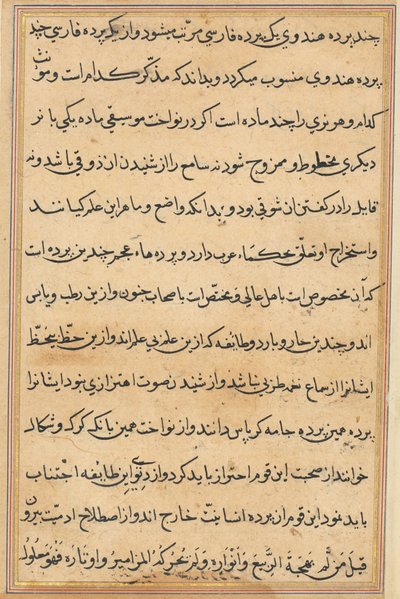 چند پرده هندوی یک پرده فارسی مرتب میشود و از یک پرده فارسی چند
پرده هندوی منسوب میکردد و بداند که مذکر کدام است و مونث
کدام و هر نری را چند ماده است اکر در نواخت موسیقی ماده یکی با نر
دیکری مخطوط و ممزوج شود نه سامع را از شنیدن آن ذوقی باشد و نه
قایل را در کفتن آن شوقی بود و بداند که واضع و ماهر این علم کیانند
و استخراج او تعلق بحکماء عرب دارد و پرده هاء عجم چندین پرده است
که آن مخصوص است باهل عالی و مختص است باصحاب جنون و ازین رطب و یابس
اند و چندین حار و بارد و طایفه که از این علم بی علم اند و ازین حظ بی حظ
ایشانرا از سماع نغمه طربی نباشد و از شنید ن صوت اهتزازی نبود ایشانرا
پرده همین پرده جامه کرباس دانند و از نواخت همین بانک کرک و شکال
خوانند از صحبت این قوم احتراز باید کرد و از دنوی این طایفه اجتناب
باید نمود این قوم از پرده انسانیت خارج اند و از اصطلاح ادمیت بیرون
قیل من لم یهجة الربیع و انواره و لم تحرکه المزامیر و اوتاره فهو معلول